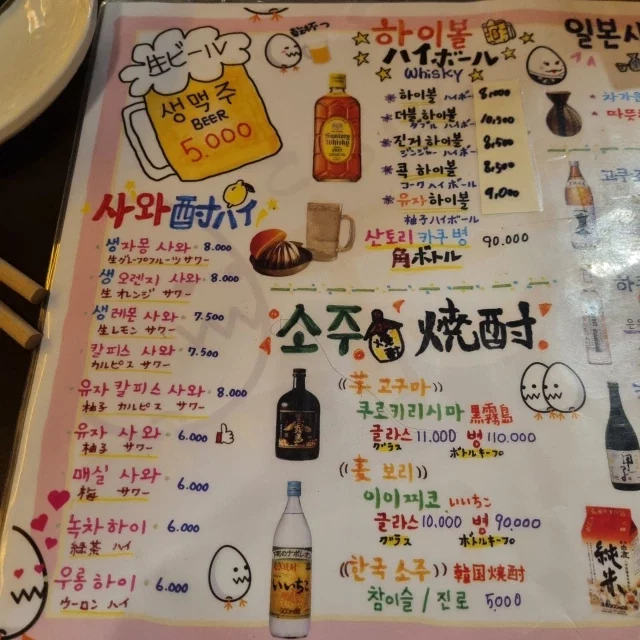 乾杯っ
生ビール
생맥주
BEER
5.000
하이볼
ハイボール
whisky
하이볼 ハイボー 8,000
더블 하이볼 10,300
ダブル ハイボ
진저하이볼 8,500
ジンジャー ハイボ
콕 하이볼 8,500
コーク ハイボール
유자 하이볼 9,000
柚子 ハイボール
산토리 카쿠병 90.000
角ボトル
사와 酎ハイ
생자몽 사와 8.000
生グレープフルーツサワー
생오렌지 사와 8.000
生オレンジ サワー
생레몬 사와 7.500
生レモン サワー
칼피스 사와 7.500
カルピス サワー
유자 칼피스 사와 8.000
柚子 カルピス サワー
유자 사와 6.000
柚子 サワー
매실 사와 6.000
梅 サワー
녹차하이 6.000
緑茶 ハイ
우롱하이 6.000
ウーロン ハイ
소주 焼酎
((芋 고구마))
쿠로키리시마 黒霧島
글라스 11.000 병 110.000
グラス ボトルキープ
((麦 보리))
이이찌코 いいちこ
글라스 10,000 병 90,000
グラス ボトルキープ
((한국 소주)) 韓国焼酎
참이슬 / 진로 5,000
いいちこ
일본사
차가운
고쿠
純米